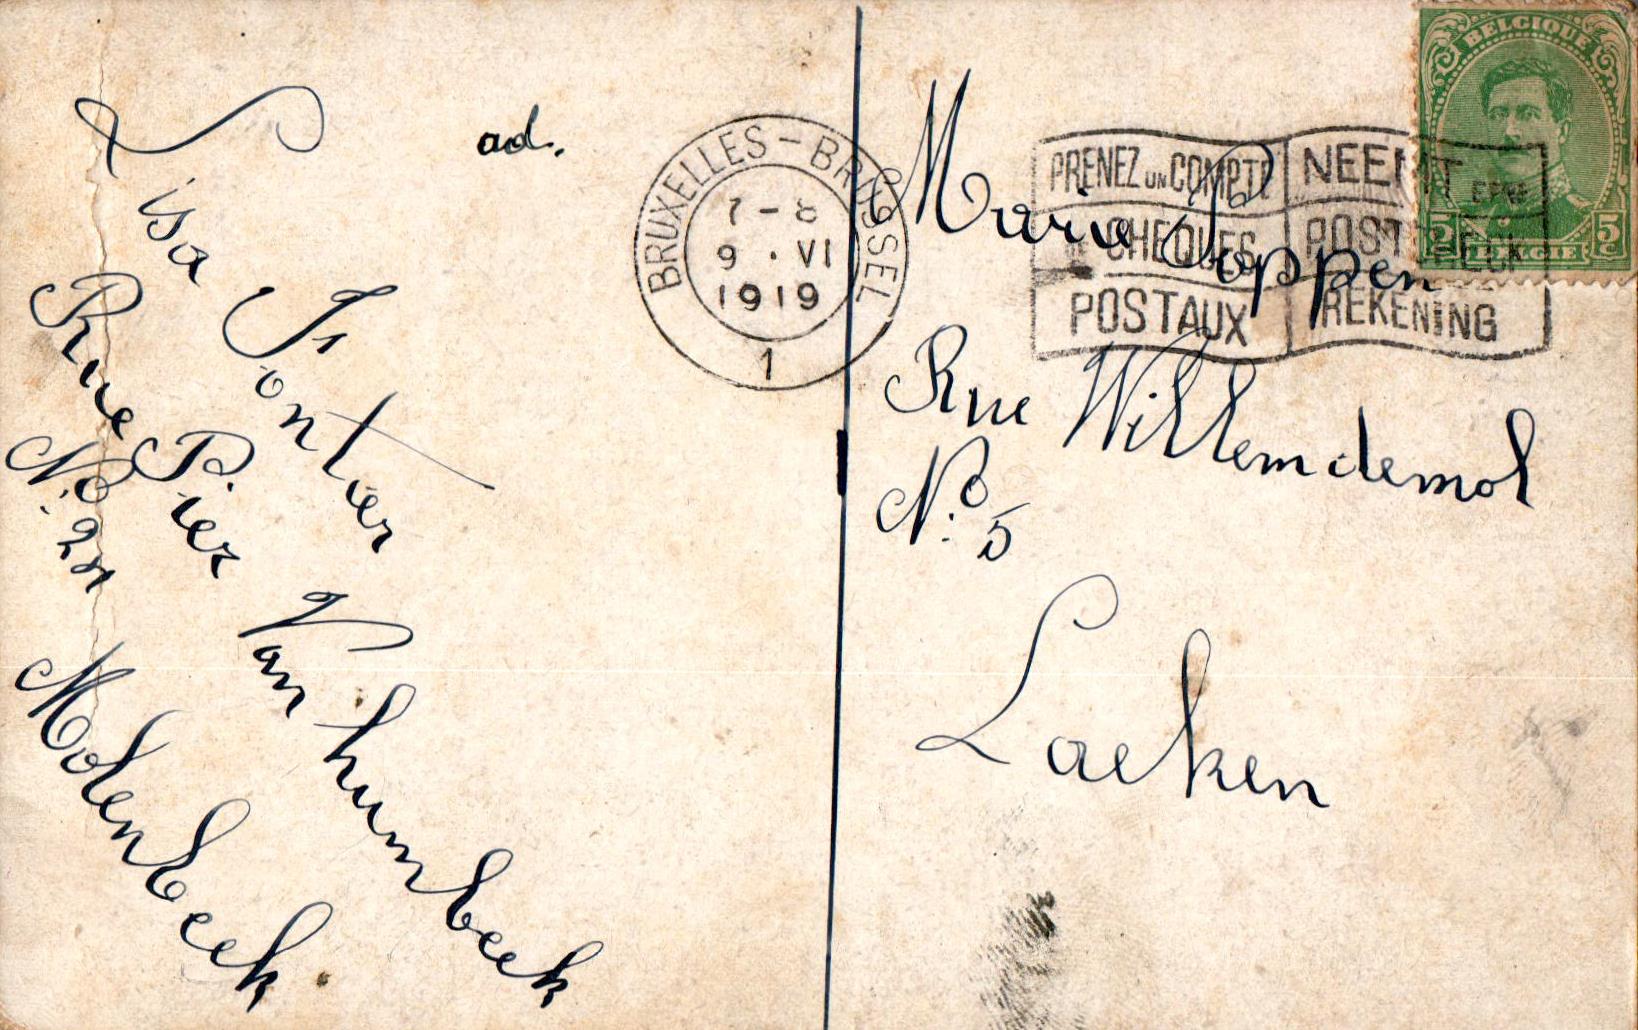 ad.
Lisa Fontier
Rue Pier Van humbeek
No.
Molenbeek
BRUXELLES - BRUSSEL
7-8
9 . VI
1919
1
PRENEZ UN COMPTE
CHEQUES
POSTAUX
NEEMT EENE
POSTCHECK
REKENING
BELGIQUE
5 5
BELGIE
Maria Poppen
Rue Willemdemol
No. 5
Laeken